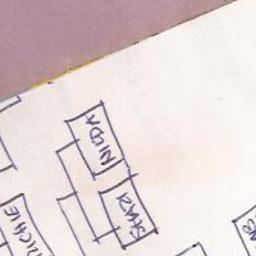 NIDA
SHAZI
RICHIE